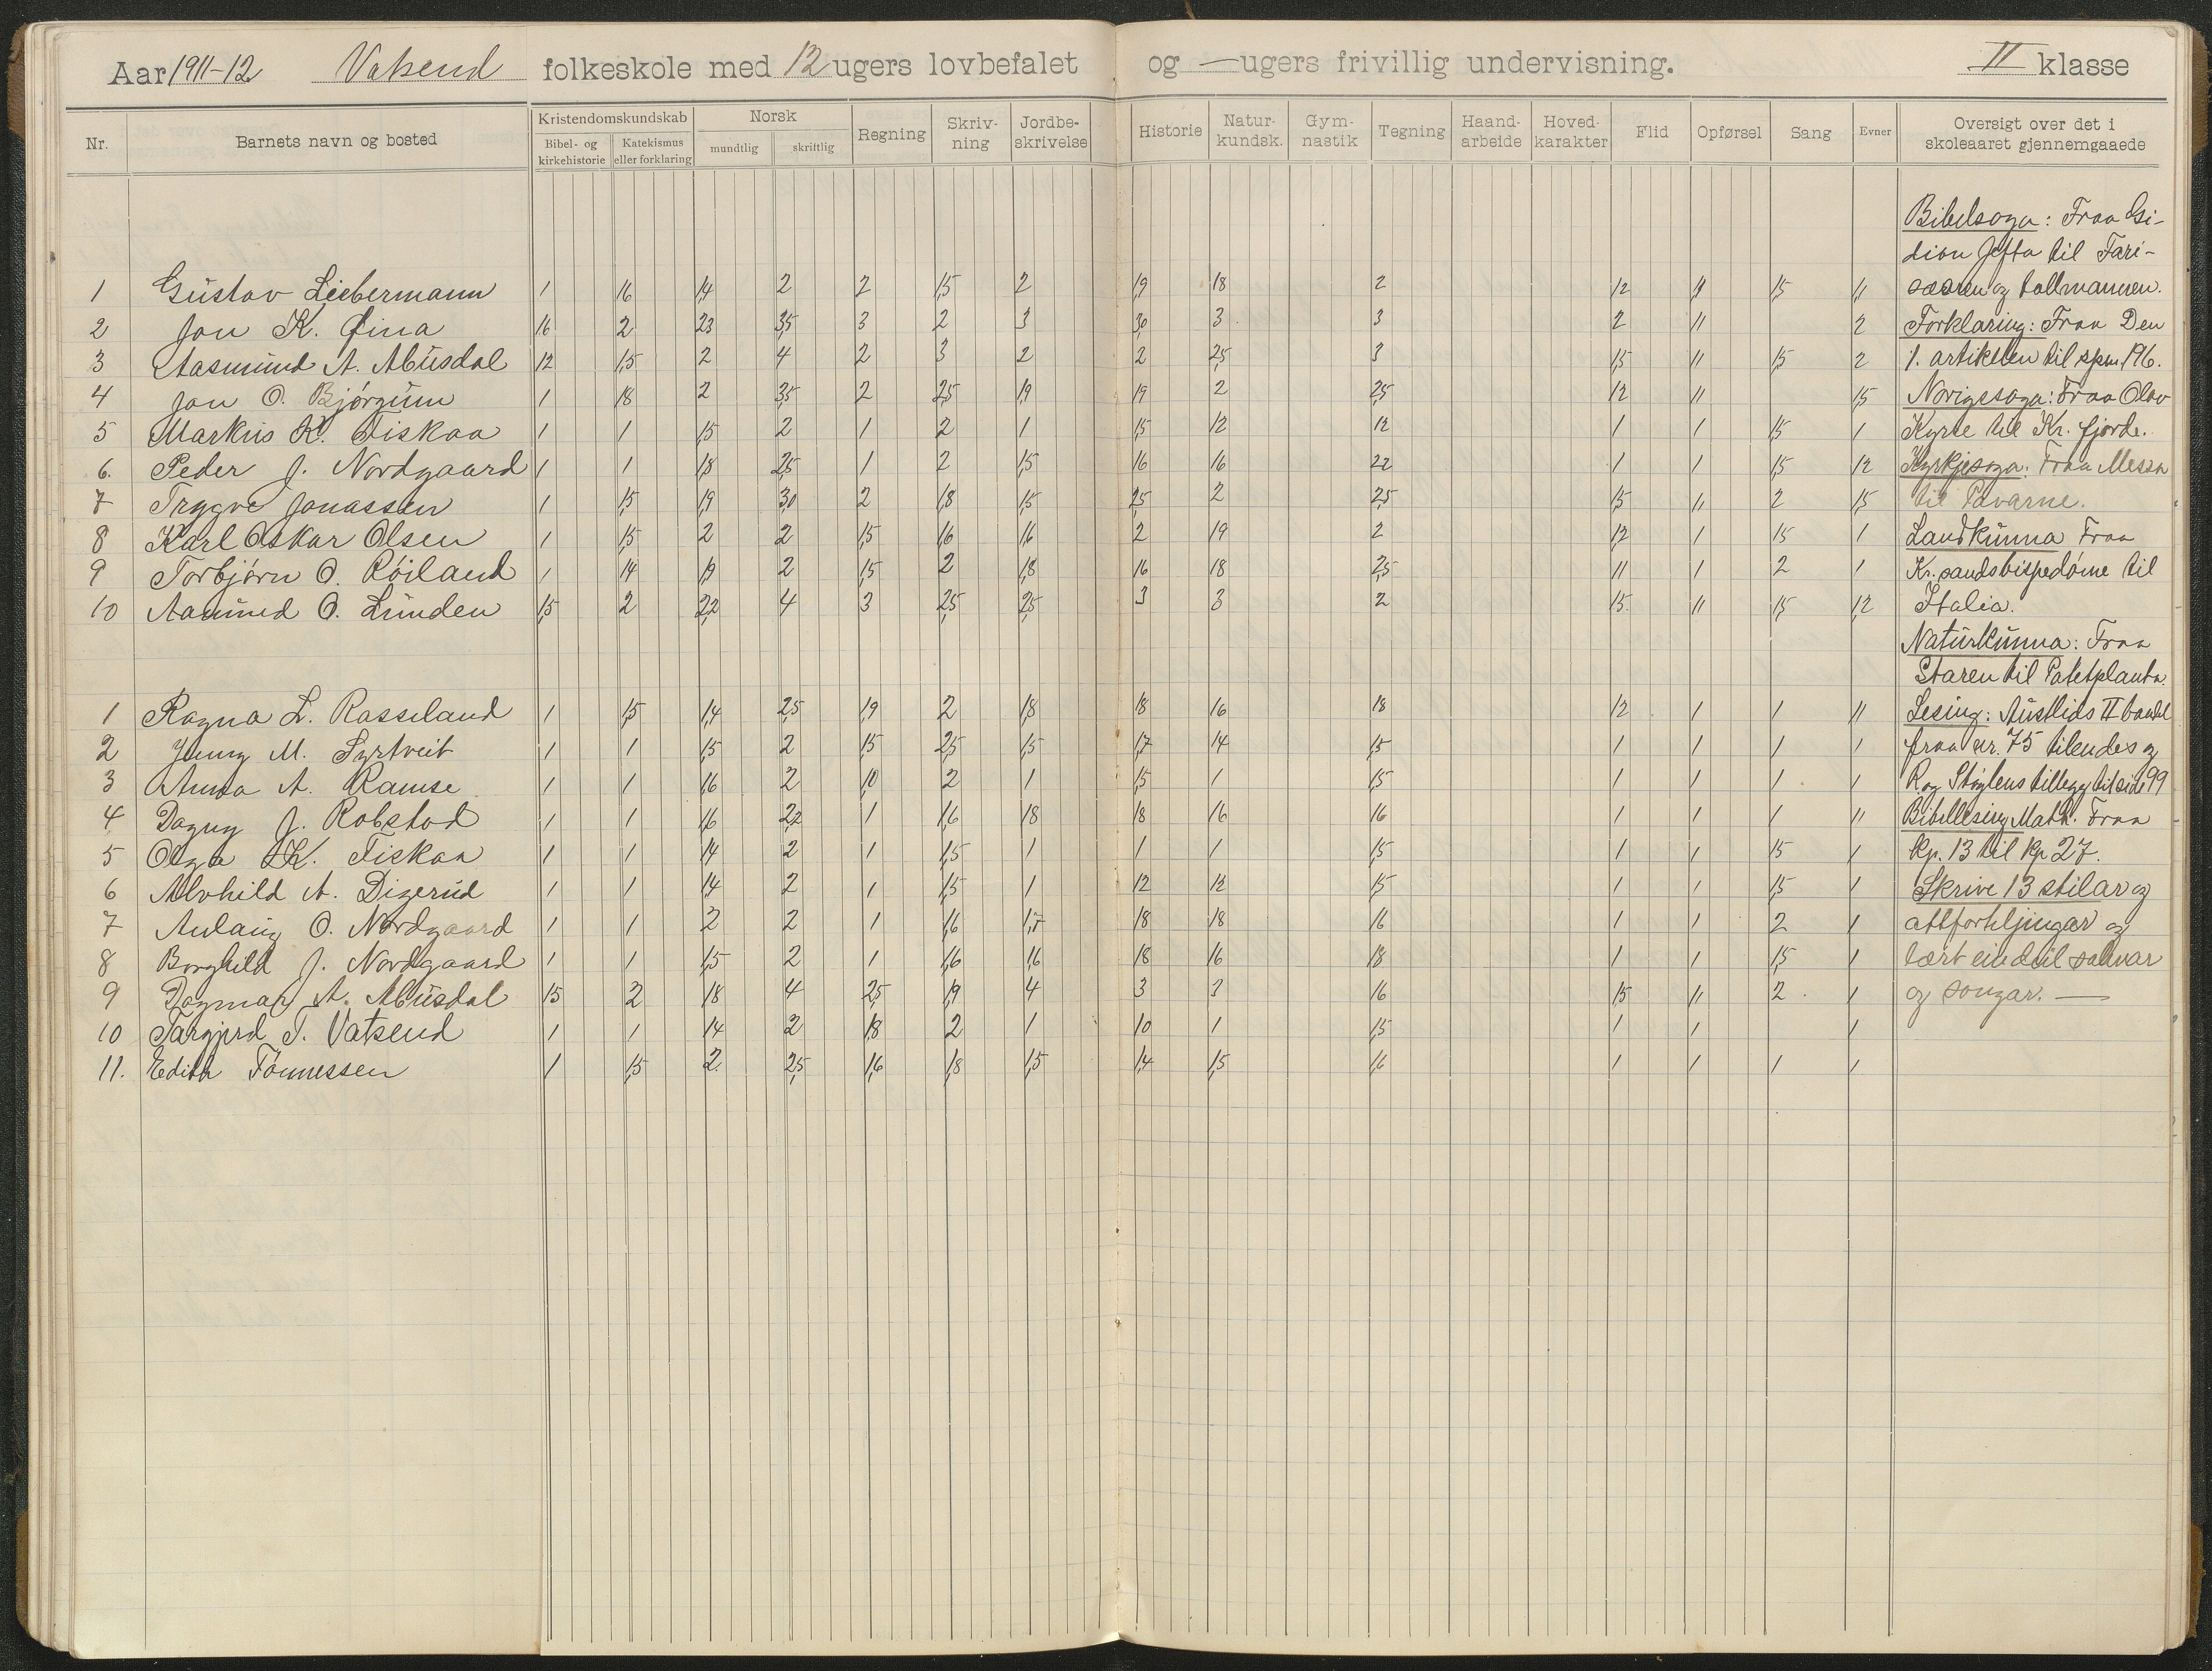 Aar 1911-12 Vatsend folkeskole med 12 ugers lovbefalet og — ugers frivillig undervisning. II klasse
Nr. Barnets navn og bosted Kristendomskundskab Norsk Regning Skriv-ning Jordbe-skrivelse Historie Natur-kundsk. Gym-nastik Tegning Haand-arbeide Hoved-karakter Flid Opførsel Sang Evner Oversigt over det i skoleaaret gjennemgaaede
Bibel- og kirkehistorie Katekismus eller forklaring mundtlig skriftlig
1 Gustav Liebermann 1 1,6 1,4 2 2 1,5 2 1,9 1,8 2 1,2 1,1 1,5 1,1
2 Jon K. Øina 1,6 2 2,3 3,5 3 2 3 3,0 3 3 2 1,1 2
3 Aasmund A. Abusdal 1,2 1,5 2 4 2 3 2 2 2,5 3 1,5 1,1 1,5 2
4 Jon O. Bjørgum 1 1,8 2 3,5 2 2,5 1,9 1,9 2 2,5 1,2 1,1 1,5
5 Markus K. Fiskaa 1 1 1,5 2 1 2 1 1,5 1,2 1,2 1 1 1,5 1
6. Peder J. Nordgaard 1 1 1,8 2,5 1 2 1,5 1,6 1,6 2,2 1 1 1,5 1,2
7 Trygve Jonassen 1 1,5 1,9 3,0 2 1,8 1,5 2,5 2 2,5 1,5 1,1 2 1,5
8 Karl Oskar Olsen 1 1,5 2 2 1,5 1,6 1,6 2 1,9 2 1,2 1 1,5 1
9 Torbjørn O. Røiland 1 1,4 1,9 2 1,5 2 1,8 1,6 1,8 2,5 1,1 1 2 1
10 Aamund O. Lunden 1,5 2 2,2 4 3 2,5 2,5 3 3 2 1,5 1,1 1,5 1,2
1 Ragna L. Rosseland 1 1,5 1,4 2,5 1,9 2 1,8 1,8 1,6 1,8 1,2 1 1 1,1
2 Jenny M. Syrtveit 1 1 1,5 2 1,5 2,5 1,5 1,7 1,4 1,5 1 1 1 1
3 Anna A. Ramse 1 1 1,6 2 1,0 2 1 1,5 1 1,5 1 1 1 1
4 Dagny J. Robstad 1 1 1,6 2,2 1 1,6 1,8 1,8 1,6 1,6 1 1 1 1,1
5 Olga K. Fiskaa 1 1 1,4 2 1 1,5 1 1 1 1,5 1 1 1,5 1
6 Alvhild A. Digerud 1 1 1,4 2 1 1,5 1 1,2 1,2 1,5 1 1 1,5 1
7 Aulaug O. Nordgaard 1 1 2 2 1 1,6 1,7 1,8 1,8 1,6 1 1 2 1
8 Borghild J. Nordgaard 1 1 1,5 2 1 1,6 1,6 1,8 1,6 1,8 1 1 1,5 1
9 Dagmar A. Abusdal 1,5 2 1,8 4 2,5 1,9 4 3 3 1,6 1,5 1,1 2 1
10 Targjerd T. Vatsend 1 1 1,4 2 1,8 2 1 1,0 1 1,5 1 1 1
11. Edith Tønnessen 1 1,5 2 2,5 1,6 1,8 1,5 1,4 1,5 1,6 1 1 1 1
Bibelsoga: Fraa Gi-
dion Jefta til Fari-
sæaren og tollmannen.
Forklaring: Fraa Den
1. artikelen til spm. 196.
Norigssoga: Fraa Olav
Kyrre til Kr. fjorde.
Kyrkjesoga: Fraa Messa
til Pavarne.
Landkunna Fraa
Kr.sandsbispedøme til
Italia.
Naturkunna: Fraa
Staren til Potetplanta.
Lesing: Austlids II bandet
fraa nr. 75 til endes og
R. og Støylens tillegg til side 99
Bibellesing Math. Fraa
kp. 13 til kp 27.
Skrive 13 stilar og
attforteljingar og
lært eindeil salmar
og songar. —